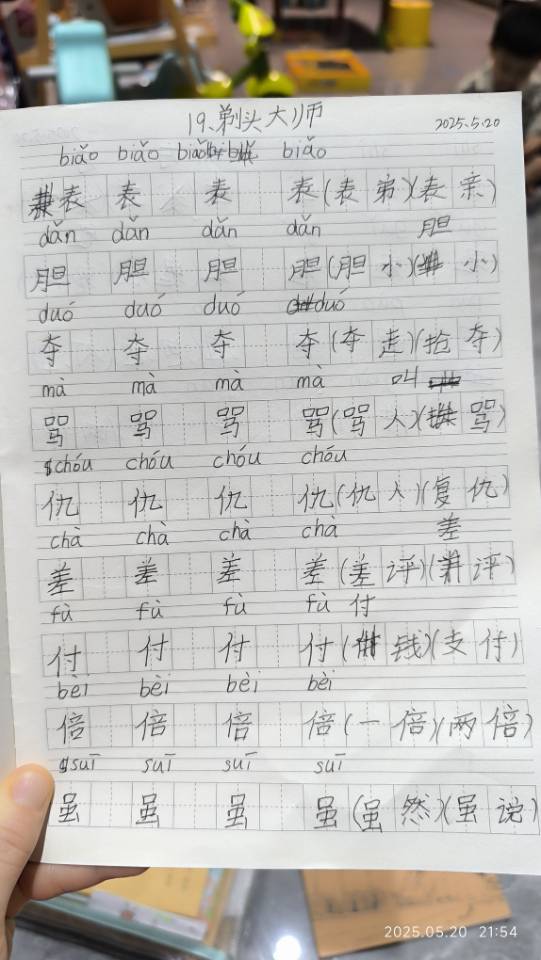 19、剃头大师 2025.5.20
biǎo biǎo biǎo biǎo
表 表 表 表(表弟)(表亲)
dǎn dǎn dǎn dǎn 胆
胆 胆 胆 胆(胆小)(小)
duó duó duó duó
夺 夺 夺 夺(夺走)(抢夺)
mà mà mà mà 叫
骂 骂 骂 骂(骂人)(骂)
chóu chóu chóu chóu
仇 仇 仇 仇(仇人)(复仇)
chà chà chà cha 差
差 差 差 差(差评)(评)
fù fù fù fù 付
付 付 付 付(钱)(支付)
bèi bèi bèi bèi
倍 倍 倍 倍(一倍)(两倍)
suī suī suī suī
虽 虽 虽 虽(虽然)(虽说)
2025.05.20 21:54